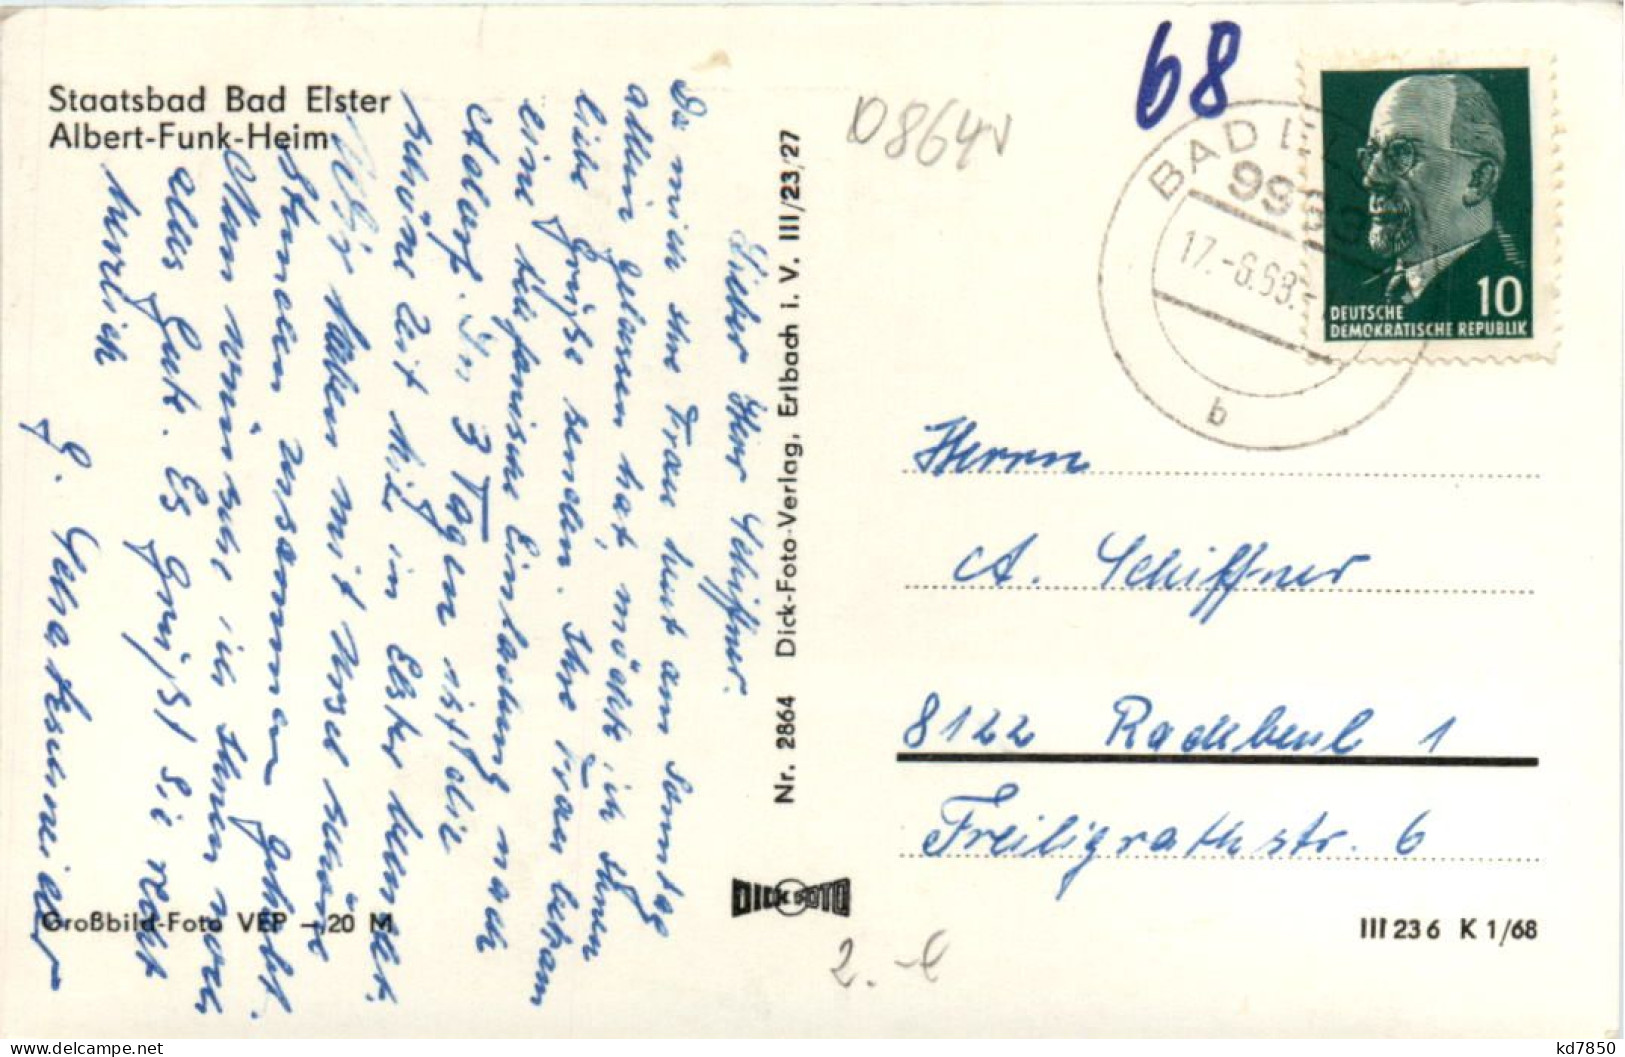 Staatsbad Bad Elster
Albert-Funk-Heim
68
D864v
BAD
99
17.-6.68.
b
10
DEUTSCHE
DEMOKRATISCHE REPUBLIK
Lieber Herr Schiffner.
Da mich Ihre Frau heut am Sonntag
allein gelassen hat, möchte ich Ihnen
liebe Grüße senden. Ihre Frau bekam
eine telefonische Einladung nach
Adorf. In 3 Tagen ist die
schöne Zeit hier in Elster beendet.
Wir haben mit Ursel schöne
Stunden zusammen gehabt.
Nun wünsche ich Ihnen noch
alles Gute. Es grüßt Sie recht
herzlich
G.
Nr. 2864 Dick-Foto-Verlag, Erlbach i. V. III/23/27
DICK FOTO
Herrn
A. Schiffner
8122 Radebeul 1
Freiligrathstr. 6
Großbild-Foto VEP -,20 M
III 23 6 K 1/68
2.-
kd7850